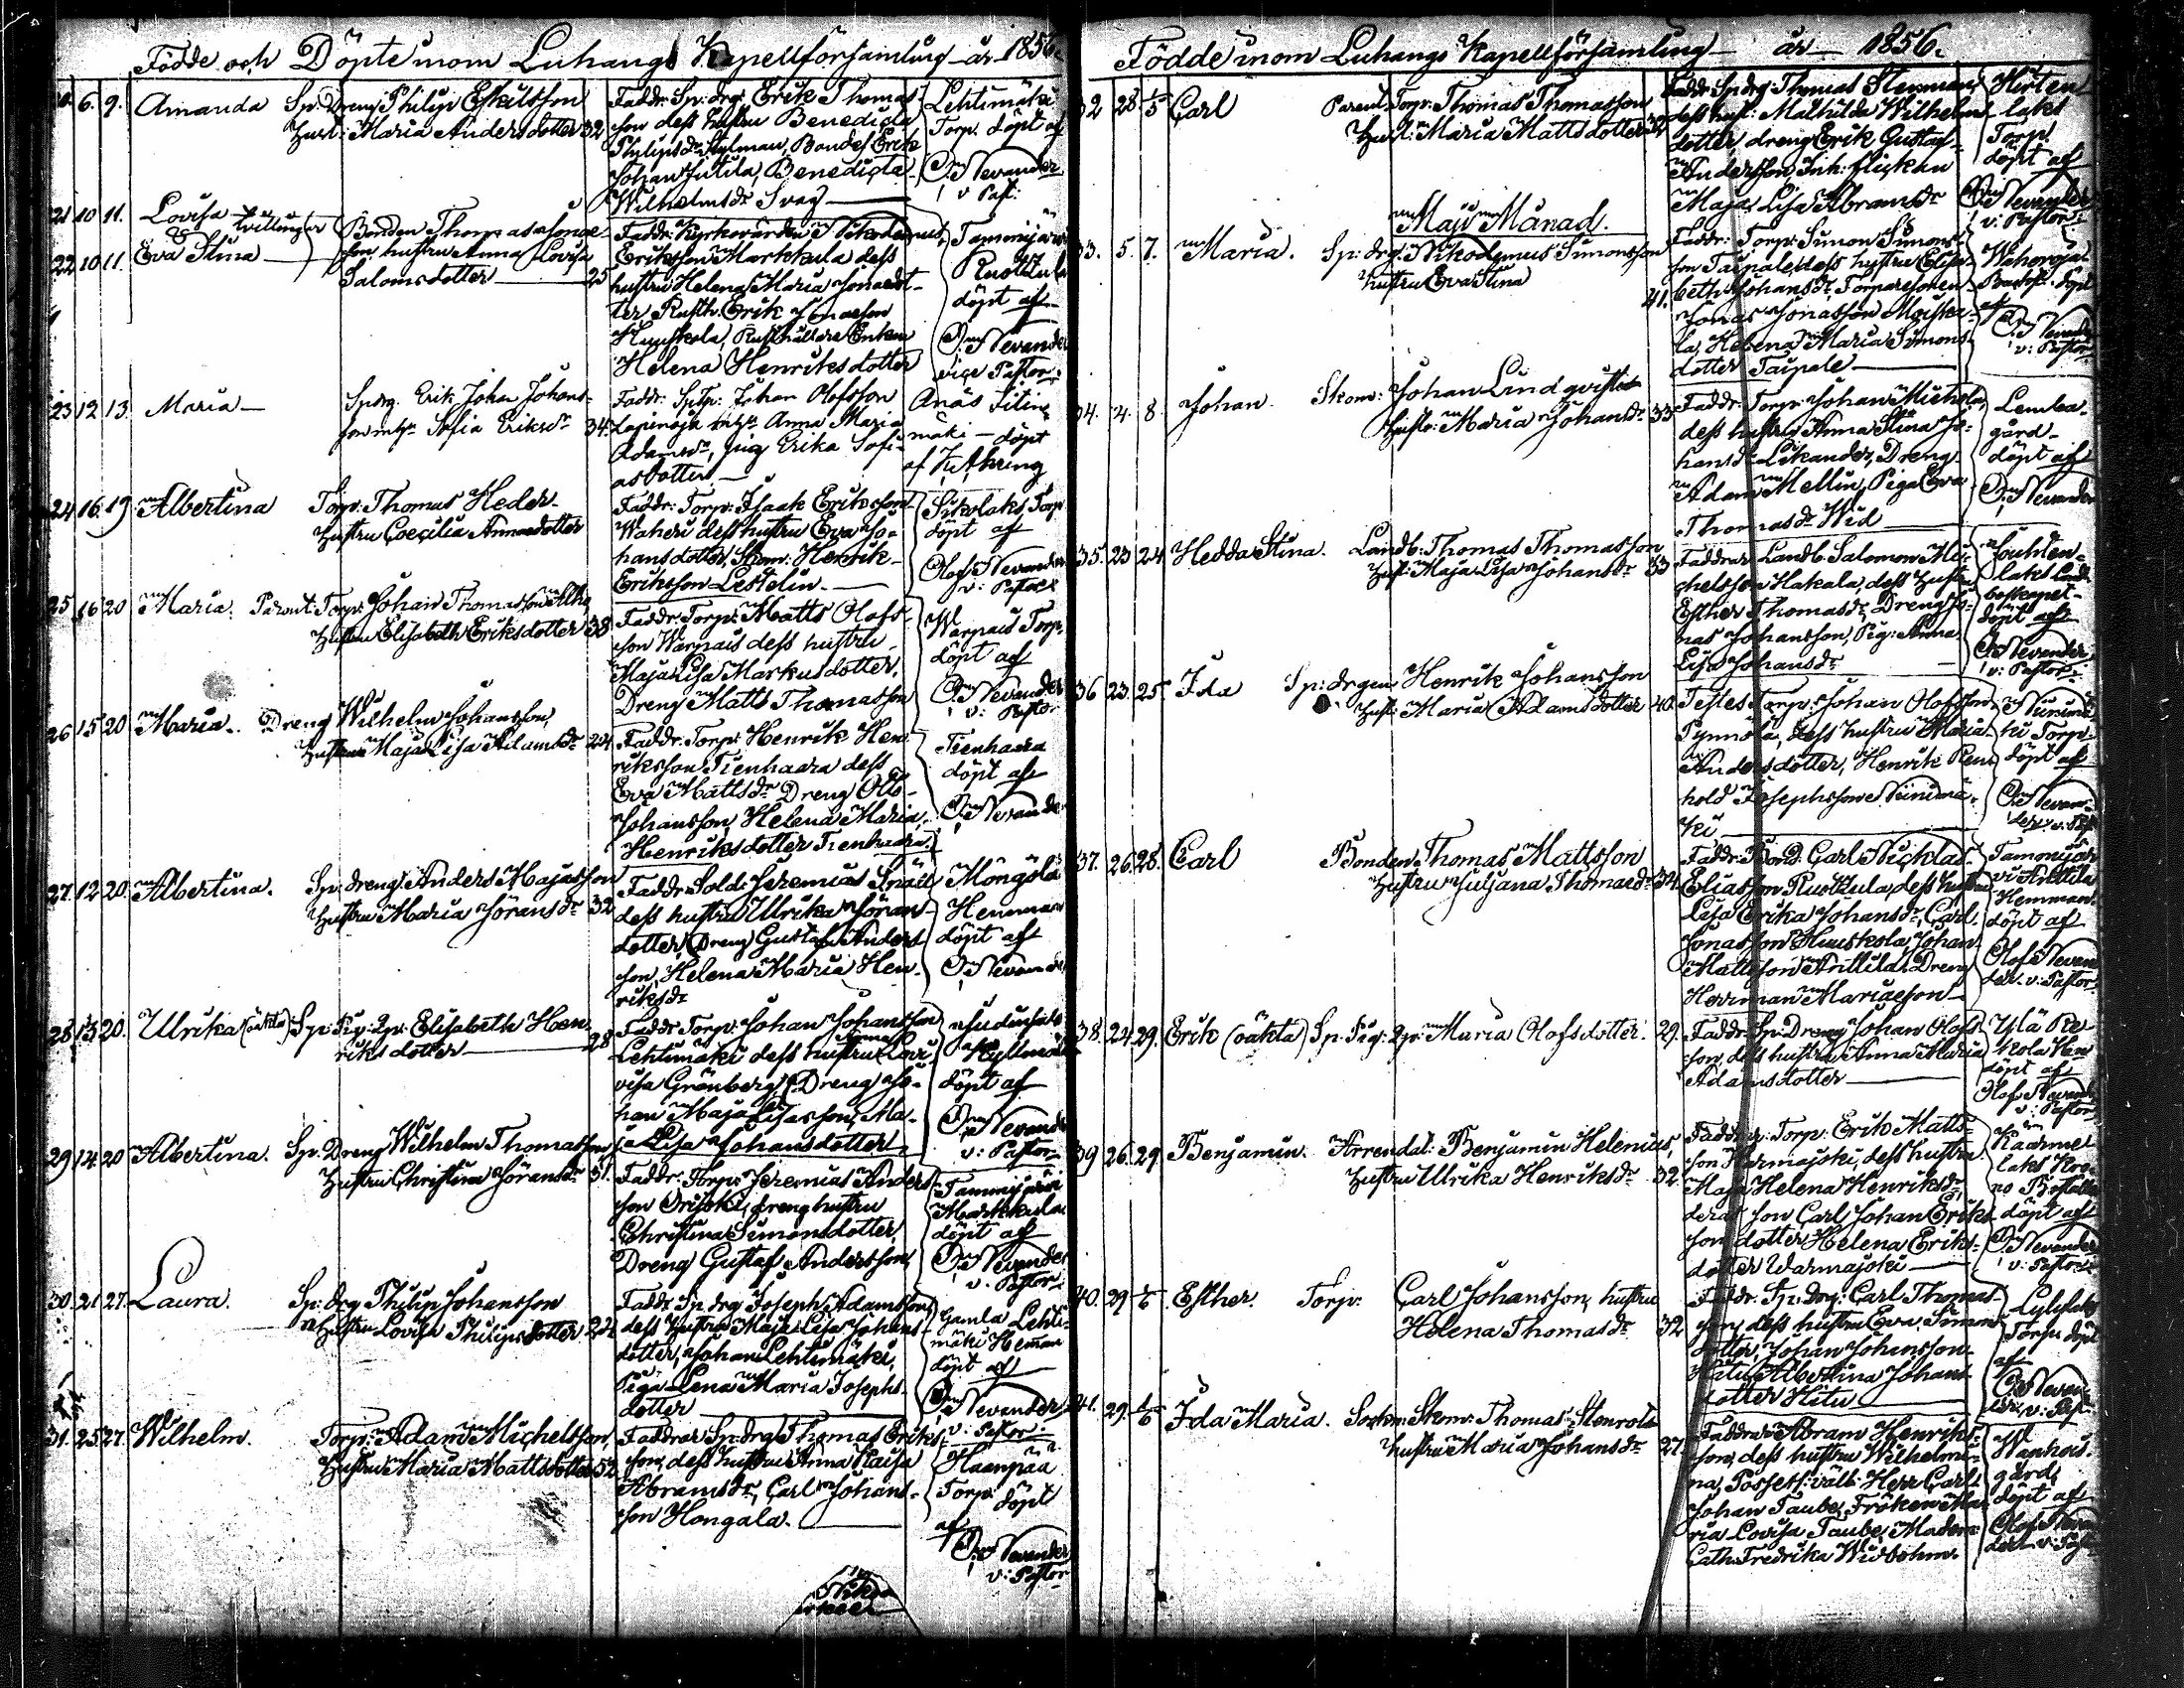 Födde och Döpte inom Luhangs Kapellförsamling år 1856.
20. 6. 9. Amanda Sp: Dreng Philip Eskilsson
Hust: Maria Andersdotter 32
Faddr: Sp: drg: Erik Thomas-
son dess hustru Benedicta
Philipsdr Hylman, Bondes: Erik
Johan Jutila, Benedicta
Wilhelmsdr Svag
Lehtimäki
Torp. döpt af
O. Nevander
v. Past:
21 10 11. Lovisa
& tvillingar
22 10 11. Eva Stina
Bonden Thomas Jonae-
son, hustru Anna Lovisa
Salomsdotter 25
Faddr: Kyrkovärden Nikodemus
Eriksson Markkula dess
hustru Helena Maria Jonaedot-
ter Rusth. Erik Jonaeson
Huuskola, Rusthållare Enkan
Helena Henriksdotter
Tammijärvi
Rusttula
döpt af
O. Nevander
vice Pastor
23 12 13 Maria
Spdrg. Erik Johan Johans-
son o hu Sofia Eriksdr 34
Faddr: SpTp: Johan Olofsson
Lapinoja o hu Anna Maria
Adamsdr, pig Erika Sofi-
asdotter.
Anäs Siti
mäki — döpt
af
24 16 19 Albertina Torp. Thomas Heder-
Hustru Coecilia Annaedotter
Faddr: Torp: Isaak Eriksson
Waheri dess hustru Eva Jo-
hansdotter, Skom: Henrik
Eriksson Lestelin.
Sikolaks Torp
döpt af
Olof Nevander
v: Pastor
25 16 20 Maria. Parent: Torp: Johan Thomasson Alho,
Hustru Elisabeth Eriksdotter 38
Faddr: Torp: Matts Olofs-
son Warpais dess hustru
Maja Lisa Markusdotter,
Dreng Matts Thomasson
Warpais Torp,
döpt af
O. Nevander
v: Pastor
26 15 20 Maria. Dreng Wilhelm Johansson,
Hustru Maja Lisa Adamsdr 24
Faddr: Torp: Henrik Hen-
riksson Tienhaara dess
Eva Mattsdr Dreng Otto
Johansson, Helena Maria
Henriksdotter Tienhaara.
Tienhaara
döpt af
O. Nevander
27. 12 20. Albertina. Sp: dreng Anders Majasson
Hustru Maria Göransdr 32
Faddr: Sold: Jeremias Snäll
dess hustru Ulrika Göran-
dotter, Dreng Gustaf Anders-
son, Helena Maria Hen-
riksdr
Mongola
Hemman
döpt af
O. Nevander
28 13 20. Ulrika (oäkta) Sp: Pig: Qp: Elisabeth Hen-
riksdotter 28
Faddr: Torp: Johan Johansson
Lehtimäki dess hustru Anna Lovi-
visa Grönberg, Dreng Jo-
han Maja Lisasson, Ma-
ja Lisa Johansdotter
döpt af
O. Nevander
v: Pastor
29 14 20 Albertina. Sp: Dreng Wilhelm Thomasson
Hustru Christina Göransdr 31.
Faddr: Torp: Jeremias Anders-
son Orisoki, dreng hustru
Christina Simonsdotter,
Dreng Gustaf Andersson,
Tammijärvi
Markkula
döpt af
O. Nevander
v: Pastor
30. 21 27. Laura. Sp: drg Philip Johansson
Hustru Lovisa Philipsdotter 22
Faddr: Sp: drg Joseph Adamsson,
dess Hustru Maja Lisa Johans-
dotter, Johan Lehtimäki,
Piga Lena Maria Josephs-
dotter
Gamla Lehti-
mäki Heman
döpt af
O. Nevander
v: Pastor
31. 25 27. Wilhelm. Torp: Adam Michelsson,
Hustru Maria Mattsdotter 52
Faddrar Sp: drg Thomas Eriks-
son, dess hustru Anna Kaisa
Abramsdr, Carl Johans-
son Hongala.
Haanpää
Torp: döpt
af
O. Nevander
v: Pastor
Födde inom Luhangs Kapellförsamling år 1856.
32 28 1/5 Carl Parent. Torp: Thomas Thomasson
Hust: Maria Mattsdotter 32
Faddr: Sp drg Thomas Stenman,
dess hust: Mathilda Wilhelms-
dotter, dreng Erik Gustaf
Andersson, Inh: flickan
Maja Lisa Abramsdr
Hirten-
laks
Torp:
döpt af
O. Nevander
v: Pastor
Maji Månad.
33. 5. 7. Maria. Sp: drg: Nikodemus Simonsson
hustru Eva Stina 41.
Faddr: Torp: Simon Simons-
son Taipale, dess hustru Elisa-
beth Johansdr, Torparesonen
Jonas Jonasson Moiska-
la, Helena Maria Simons-
dotter Taipale
Waheroja
döpt
af
O. Nevander
v: Pastor
34. 4. 8. Johan. Skom: Johan Lindqvist
Hustr: Maria Johansdr 33
Faddr: Torp: Johan Michola,
dess hustru Anna Stina Jo-
hansdr Likander, Dreng
Adam Mellin, Piga Eva
Thomasdr Wid
Lemba-
gård-
döpt af
O. Nevander
35. 23 24 Hedda Stina. Landb: Thomas Thomasson
Hust: Maja Lisa Johansdr 33
Faddrar Landb. Salomon Mi-
chelsson Hakala, dess hustru
Esther Thomasdr, Dreng Jo-
nas Johansson, Pig: Anna
Lisa Johansdr
Jouhten-
laks Land-
döpt af
O. Nevander
v: Pastor
36 23. 25 Ida Sp: drgen Henrik Johansson
Hust: Maria Adamsdotter 40
Testes Torp: Johan Olofsson
Pynnölä, dess hustru Maria
Andersdotter, Henrik Rein-
hold Josephsson Niinimä-
ki
Niinimä-
ki Torp
döpt af
O. Nevan-
der v: Past
37. 26 28. Carl Bonden Thomas Mattsson
Hustru Juljana Thomaedr 32
Faddr: Bond: Carl Nicklas
Eliasson Rusttula, dess hustru
Lisa Erika Johansdr, Carl
Jonasson Huuskola, Johan
Mattsson Arillila, Dreng
Herrman Mariaeson
Tammijär-
vi Arillila
Hemman
döpt af
Olof Nevan-
der v: Pastor
38. 24 29. Erik (oäkta) Sp: Pig: Qp: Maria Olofsdotter. 29.
Faddr: Sp: Dreng Johan Olofs-
son, dess hustru Anna Maria
Adamsdotter
Ylä Re-
kola Hem
döpt af
Olof Nevander
v: Pastor
39 26. 29 Benjamin. Arrendat: Benjamin Helenius,
Hustru Ulrika Henriksdr 32
Faddrar: Torp: Erik Matts-
son Warmajoki, dess hustru
Maja Helena Henriksdr
deras son Carl Johan Eriks-
son, dotter Helena Eriks-
dotter Warmajoki
Kaarme
laks Kro-
no Boställe
döpt af
O. Nevander
v: Pastor
40. 29 1/6 Esther. Torp: Carl Johansson, hustru
Helena Thomasdr 32
Faddr: Sp: drg: Carl Thomas-
son, dess hustru Eva Simons-
dotter, Johan Johansson
Hitu Albertina Johans-
dotter Hitu
Torp: döpt
af
O. Nevan-
der, v: Past
41. 29. 1/6 Ida Maria. Sockn: Skom: Thomas Stenroos
hustru Maria Johansdr 27
Faddrar Abram Henriks-
son, dess hustru Wilhelmi-
na, Possess: välb: Herr Carl
Johan Taube, Fröken Ma-
ria Lovisa Taube, Madem:
Cath: Fredrika Widbohm.
Wanhais-
gård,
döpt af
Olof Nevan-
der v: Past